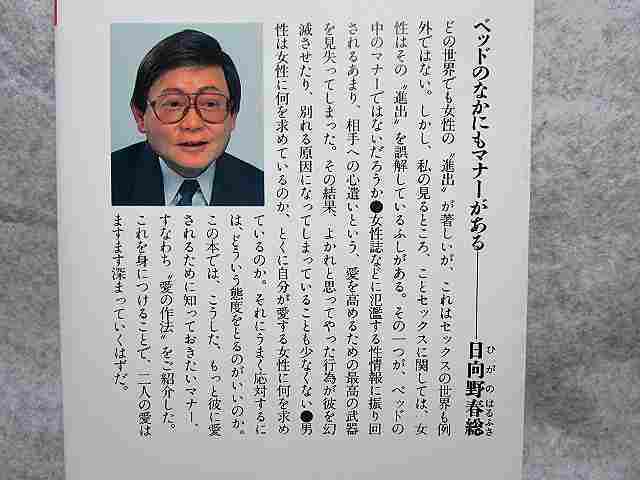 ベッドのなかにもマナーがある――日向野春総
ひがのはるふさ
どの世界でも女性の〝進出〟が著しいが、これはセックスの世界も例
外ではない。しかし、私の見るところ、ことセックスに関しては、女
性はその〝進出〟を誤解しているふしがある。その一つが、ベッドの
中のマナーではないだろうか●女性誌などに氾濫する性情報に振り回
されるあまり、相手への心遣いという、愛を高めるための最高の武器
を見失ってしまった。その結果、よかれと思ってやった行為が彼を幻
滅させたり、別れる原因になってしまっていることも少なくない●男
性は女性に何を求めているのか、とくに自分が愛する女性に何を求め
ているのか。それにうまく応対するに
は、どういう態度をとるのがいいのか。
この本では、こうした、もっと彼に愛
されるために知っておきたいマナー、
すなわち〝愛の作法〟をご紹介した。
これを身につけることで、二人の愛は
ますます深まっていくはずだ。